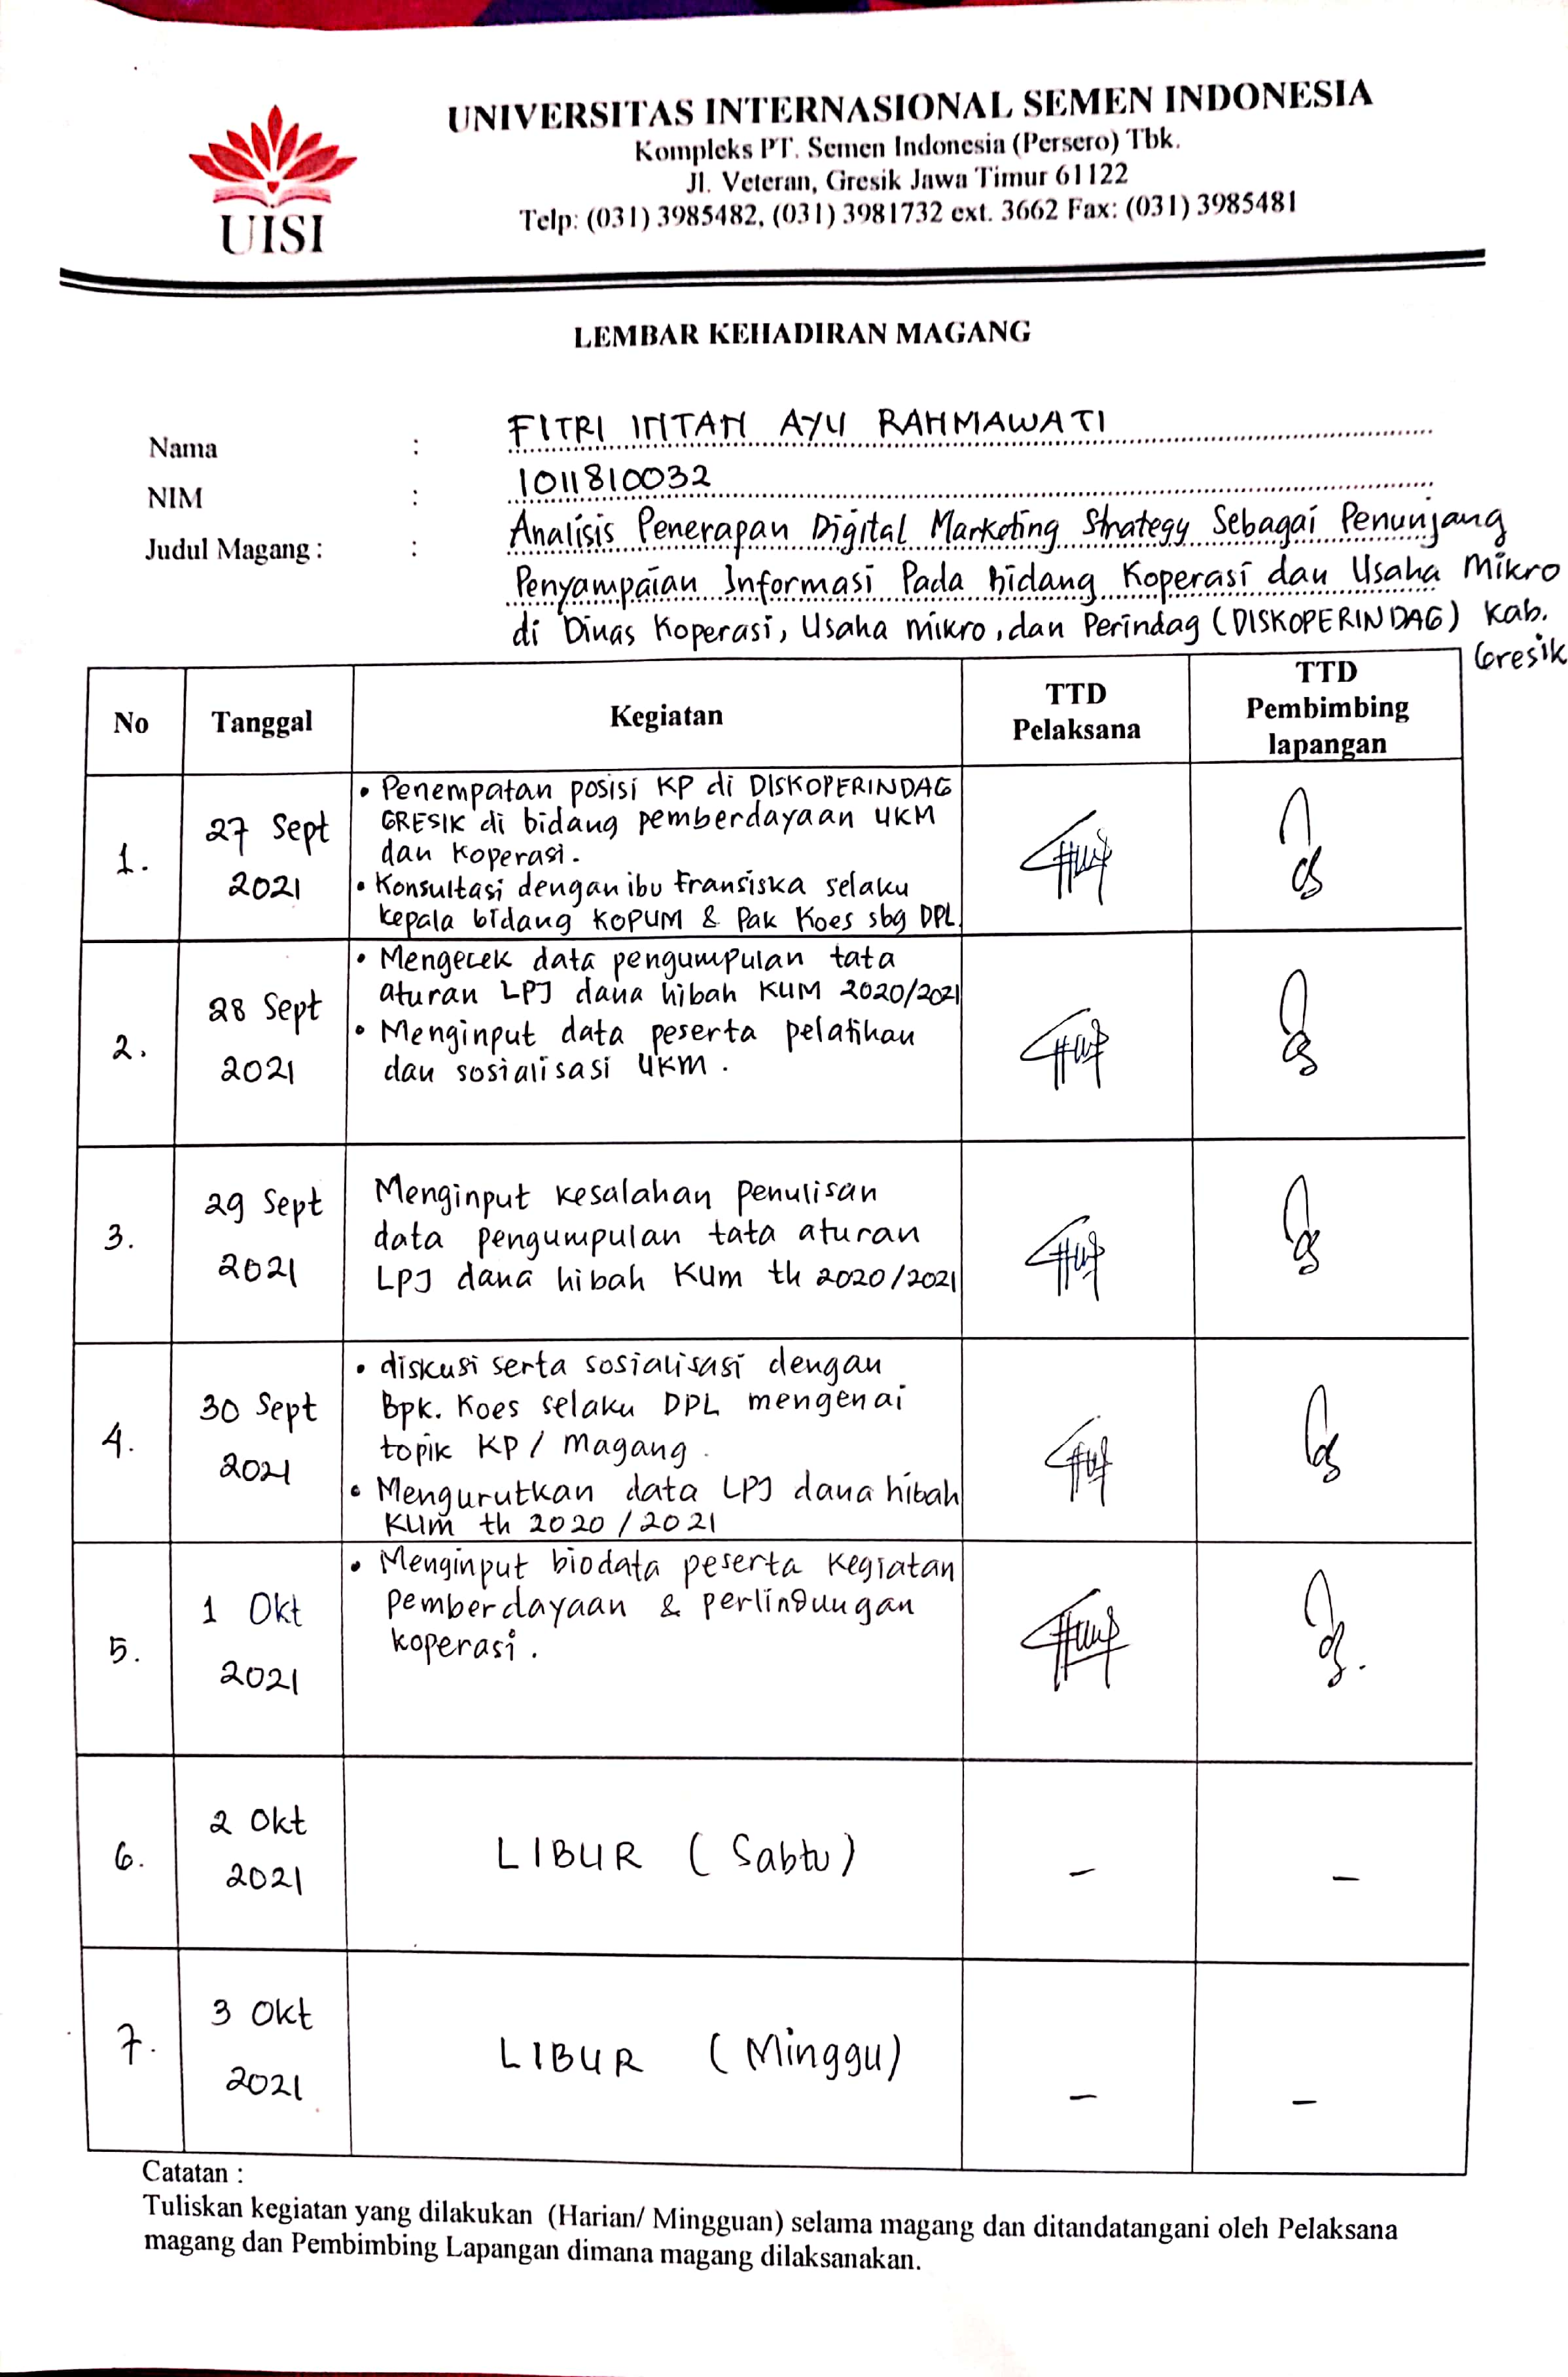 UISI
UNIVERSITAS INTERNASIONAL SEMEN INDONESIA
Kompleks PT. Semen Indonesia (Persero) Tbk.
Jl. Veteran, Gresik Jawa Timur 61122
Telp: (031) 3985482, (031) 3981732 ext. 3662 Fax: (031) 3985481
LEMBAR KEHADIRAN MAGANG
Nama : FITRI INTAN AYU RAHMAWATI
NIM : 1011810032
Judul Magang : : Analisis Penerapan Digital Marketing Strategy Sebagai Penunjang
Penyampaian Informasi Pada bidang Koperasi dan Usaha Mikro
di Dinas Koperasi, Usaha mikro, dan Perindag (DISKOPERINDAG) Kab.
Gresik
No Tanggal Kegiatan TTD Pelaksana TTD Pembimbing lapangan
1. 27 Sept 2021
• Penempatan posisi KP di DISKOPERINDAG
GRESIK di bidang pemberdayaan UKM
dan Koperasi.
• Konsultasi dengan ibu Fransiska selaku
kepala bidang KOPUM & Pak Koes sbg DPL.
2. 28 Sept 2021
• Mengecek data pengumpulan tata
aturan LPJ dana hibah KUM 2020/2021
• Menginput data peserta pelatihan
dan sosialisasi UKM.
3. 29 Sept 2021
Menginput kesalahan penulisan
data pengumpulan tata aturan
LPJ dana hibah KUM th 2020/2021
4. 30 Sept 2021
• diskusi serta sosialisasi dengan
Bpk. Koes selaku DPL mengenai
topik KP / Magang.
• Mengurutkan data LPJ dana hibah
KUM th 2020/2021
5. 1 Okt 2021
• Menginput biodata peserta kegiatan
pemberdayaan & perlindungan
koperasi.
6. 2 Okt 2021 LIBUR (Sabtu) - -
7. 3 Okt 2021 LIBUR (Minggu) - -
Catatan :
Tuliskan kegiatan yang dilakukan (Harian/ Mingguan) selama magang dan ditandatangani oleh Pelaksana
magang dan Pembimbing Lapangan dimana magang dilaksanakan.